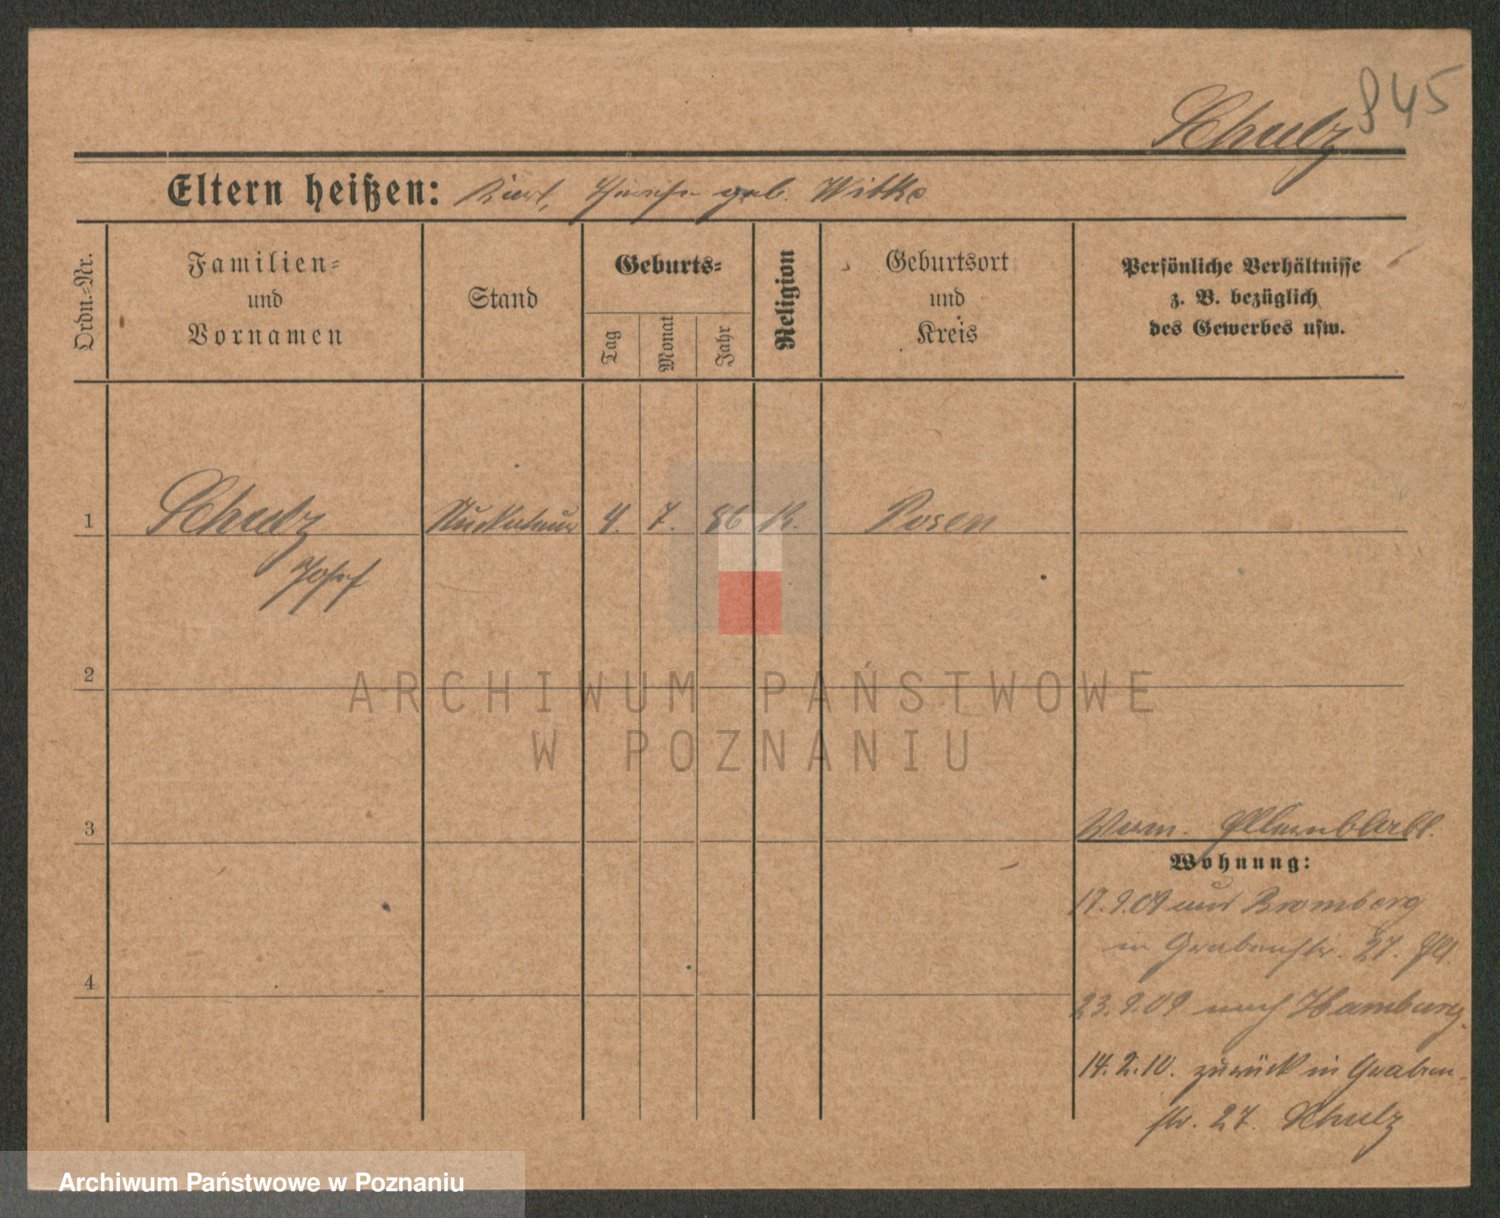 845
Schulz
Eltern heißen: geb. Witke
Ordn.-Nr.
Familien-
und
Vornamen
Stand
Geburts-
Tag
Monat
Jahr
Religion
Geburtsort
und
Kreis
Persönliche Verhältnisse
z. B. bezüglich
des Gewerbes usw.
1 Schulz Stuckateur 4. 7. 86 k. Posen
Josef
2
3
Verm. Elternblatt.
Wohnung:
17.9.09 aus Bromberg
in Grabenstr. 27.
4
23.9.09 nach Hamburg.
14.2.10. zurück in Graben-
str. 27. Schulz
ARCHIWUM PAŃSTWOWE
W POZNANIU
Archiwum Państwowe w Poznaniu